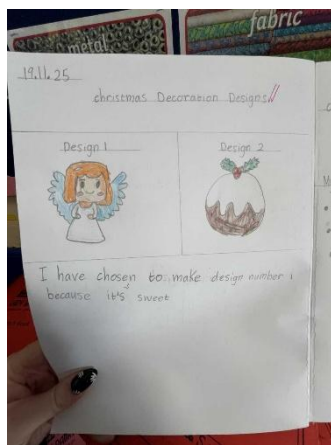 metal
fabric
19.11.25
christmas Decoration Designs
Design 1
Design 2
I have chosen to make design number 1
because it's sweet